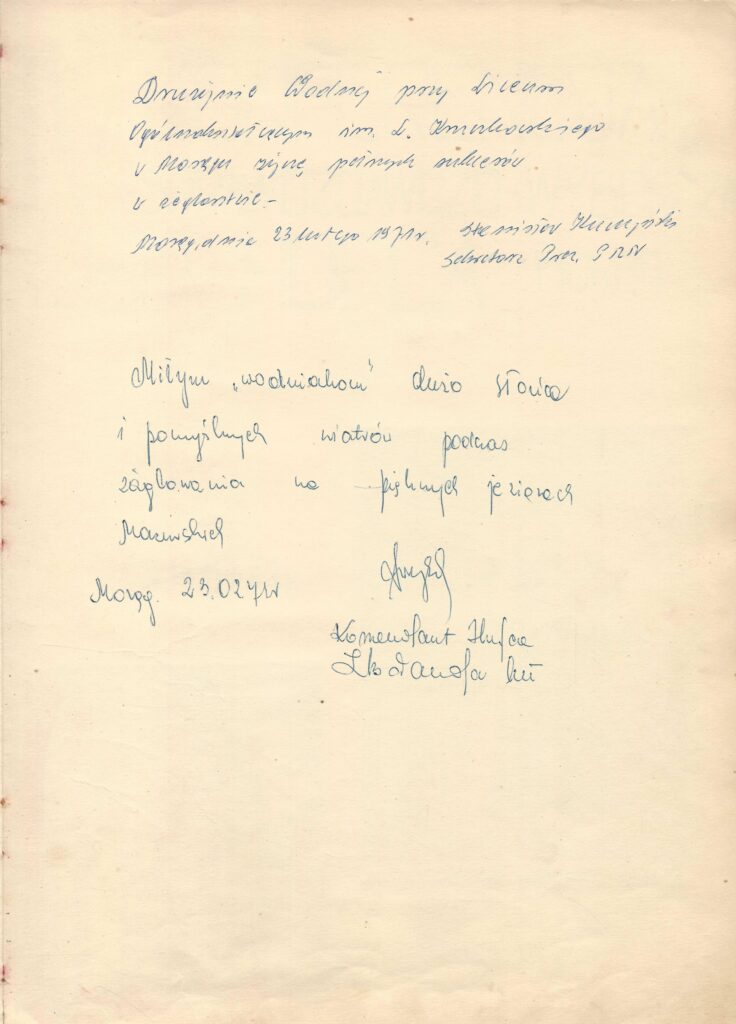 Drużynie Wodnej przy Liceum
Ogólnokształcącym im. L. Kruczkowskiego
w Morągu życzę pełnych sukcesów
w żeglarstwie –
Morąg, dnia 23 lutego 1971r. Stanisław
Sekretarz Prez. PRN
Miłym „wodniakom" dużo słońca
i pomyślnych wiatrów podczas
żeglowania na pięknych jeziorach
Mazurskich
Morąg. 23.0271r
Komendant Hufca